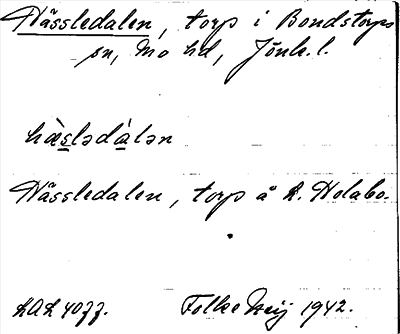 Hässledalen, torp i Bondstorps
sn, Mo hd, Jönk. l.
hæ̀slədálən
Hässledalen, torp å L. Holabo.
LAL 4077.
Folke Meij 1942.